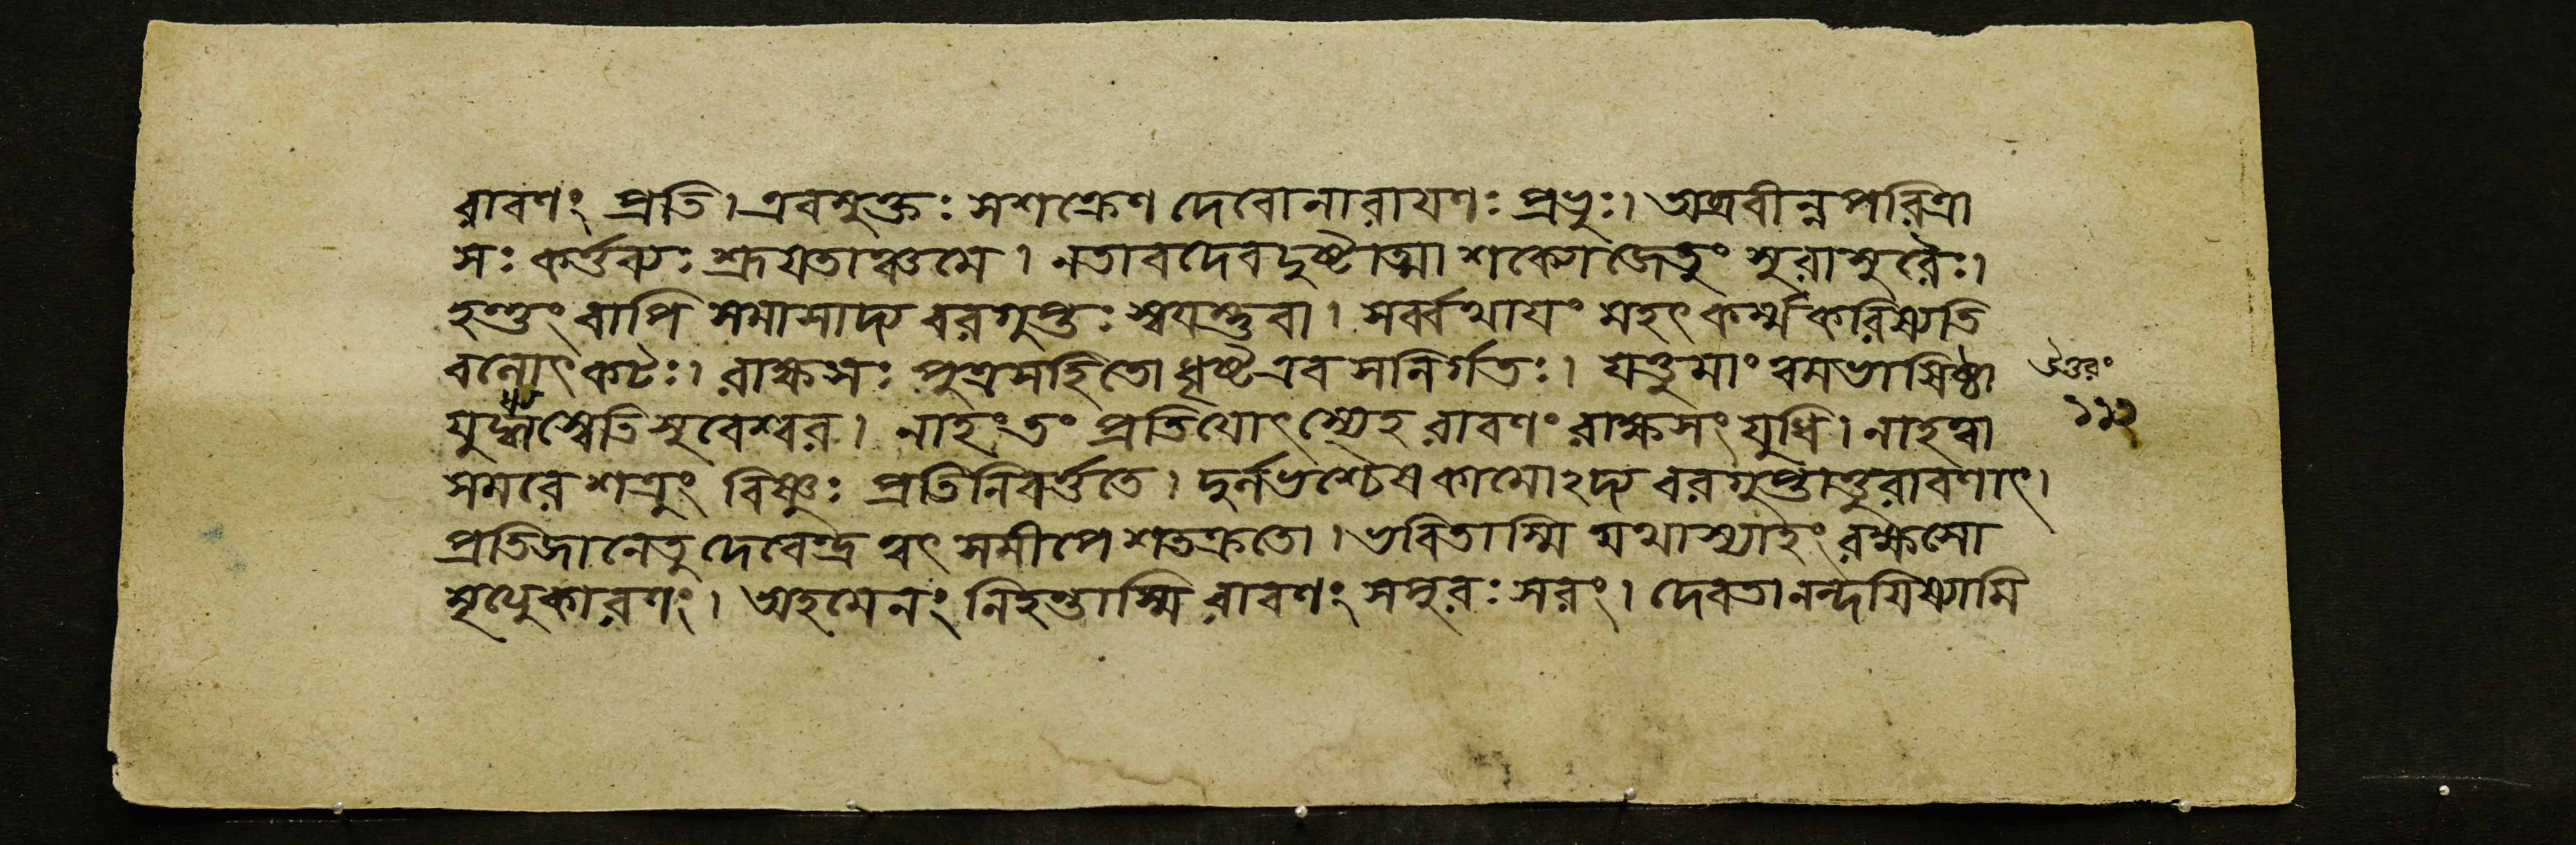 রাবণং প্রতি। এবমুক্তঃ সশক্রেণ দেবোনারাযণঃ প্রভুঃ। অব্রবীন্নপরিত্রা
সঃ কর্ত্তব্যঃ শ্রূযতাঞ্চমে। নতাবদেবদুষ্টাত্মা শক্যোজেতুং সুরাসুরৈঃ।
হন্তুং বাপি সমাসাদ্য বরগুপ্তঃ স্বযম্ভুবা। সর্ব্বথাযং মহৎ কর্ম্ম করিষ্যতি
বলোৎকটঃ। রাক্ষসঃ পুত্রসহিতো ধৃষ্টএব সনির্গতঃ। যত্তুমাং ত্বমভাষিষ্ঠা
যুদ্ধ্যস্বেতি সুরেশ্বর। নাহং তং প্রতিযোৎস্যেহ রাবণং রাক্ষসং যুধি। নাহত্বা
সমরে শত্রুং বিষ্ণুঃ প্রতিনিবর্ত্ততে। দুর্লভশ্চৈষকামোঽদ্য বরগুপ্তাত্তুরাবণাৎ।
প্রতিজানেতু দেবেন্দ্র ত্বৎ সমীপে শতক্রতো। ভবিতাস্মি যথাস্যাহং রক্ষসো
মৃত্যুকারণং। অহমেনং নিহন্তাস্মি রাবণং সপুরঃসরং। দেবতানন্দযিষ্যামি
উত্তরং
১১২